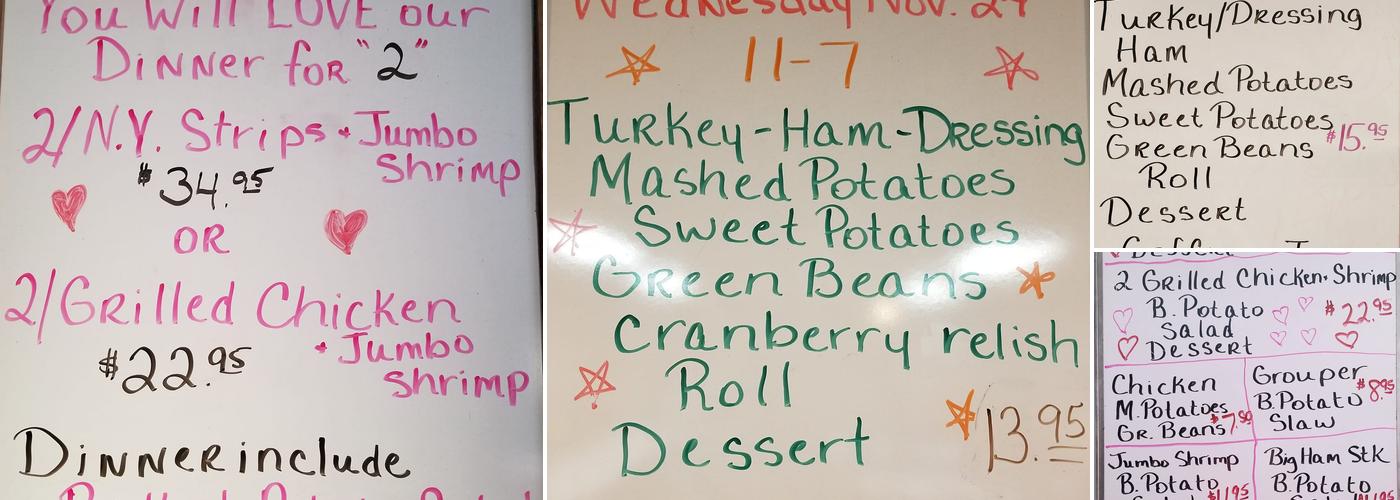 You Will LOVE our
Dinner for "2"
2/N.Y. Strips + Jumbo
Shrimp
$34.95
OR
2/Grilled Chicken
+ Jumbo
Shrimp
$22.95
Dinner include
Wednesday Nov. 24
11-7
Turkey-Ham-Dressing
Mashed Potatoes
Sweet Potatoes
Green Beans
Cranberry relish
Roll
Dessert
13.95
Turkey/Dressing
Ham
Mashed Potatoes
Sweet Potatoes
Green Beans $15.95
Roll
Dessert
2 Grilled Chicken + Shrimp
B. Potato $22.95
Salad
Dessert
Chicken
M. Potatoes
Gr. Beans $7.50
Grouper
B. Potato $8.95
Slaw
Jumbo Shrimp
B. Potato
$11.95
Big Ham Stk
B. Potato